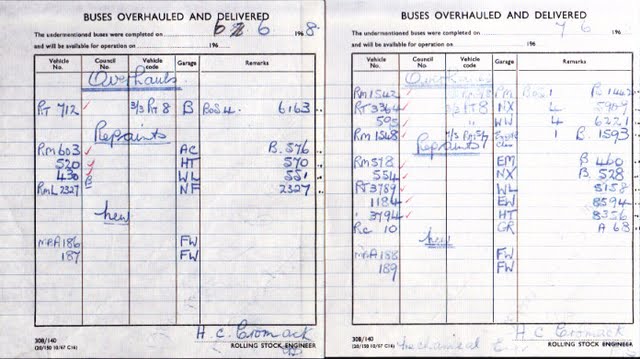 BUSES OVERHAULED AND DELIVERED
The undermentioned buses were completed on 6 6 1968.
and will be available for operation on 196
Vehicle No. Council No. Vehicle code Garage Remarks
Overhauls
RT 712 3/3 RT 8 B BOS 4. 6163
Repaints
RM 603 AC B. 576
520 HT 570
430 WL 551
RML 2327 NF 2327
New
MBA 186 FW
187 FW
H. C. Cromack
308/140
(20/150 10/67 C16) ROLLING STOCK ENGINEER
BUSES OVERHAULED AND DELIVERED
The undermentioned buses were completed on 7 6 196
and will be available for operation on 196
Vehicle No. Council No. Vehicle code Garage Remarks
Overhauls
RM 1542 RM BOS 1
RT 3364 3/3 RT8 NX 4 5909
595 WW 4 6221
RM 1568 1 B. 1593
Repaints
RM 578 EM B 460
554 NX B. 528
RT 3789 WL 5158
1184 EW 8594
3794 HT 8356
RC 10 GR A 68
New
MBA 188 FW
189 FW
H C Cromack
308/140
(20/150 10/67 C16) Mechanical ROLLING STOCK ENGINEER